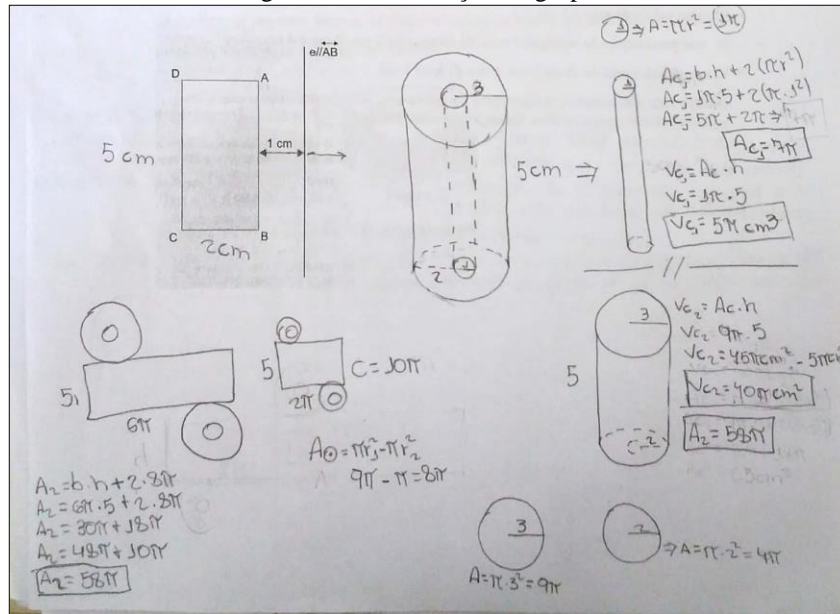 ① ⇒ A=πr²=1π
e//AB
D A
5 cm
1 cm
C B
2cm
3
2
1
5cm ⇒
1
Ac₁=b.h+2(πr²)
Ac₁=1π.5+2(π.1²)
Ac₁=5π+2π⇒
Ac₁=7π
Vc₁=Ac.h
Vc₁=1π.5
Vc₁=5π cm³
3
2
5
Vc₂=Ac.h
Vc₂ 9π.5
Vc₂=45πcm² - 5π
Vc₂=40πcm²
A₂=58π
5
6π
5
2π
C=10π
A⊙=πr₁²-πr₂²
9π-π=8π
A₂=b.h+2.8π
A₂=6π.5+2.8π
A₂=30π+18π
A₂=48π+10π
A₂=58π
3
A=π.3²=9π
2
⇒A=π.2²=4π